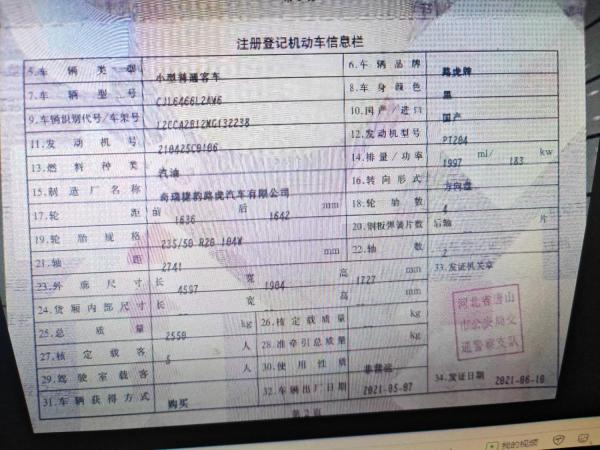 注册登记机动车信息栏
5.车辆类型 小型普通客车 6.车辆品牌 路虎牌
7.车辆型号 CJL6466L2AV6 8.车身颜色 黑
9.车辆识别代号/车架号 L2CCA2B12MG132238 10.国产/进口 国产
11.发动机号 210425C0106 12.发动机型号 PT204
13.燃料种类 汽油 14.排量/功率 1997 ml/ 183 kw
15.制造厂名称 奇瑞捷豹路虎汽车有限公司 16.转向形式 方向盘
17.轮距 前 1636 后 1642 mm 18.轮胎数 4
19.轮胎规格 235/50 R20 104W 20.钢板弹簧片数 后轴 片
21.轴距 2741 mm 22.轴数 2
23.外廓尺寸 长 4597 宽 1904 高 1727 mm 33.发证机关章
24.货厢内部尺寸 长 宽 高 mm
25.总质量 2550 kg 26.核定载质量 kg
27.核定载客 5 人 28.准牵引总质量 kg
29.驾驶室载客 人 30.使用性质 非营运
31.车辆获得方式 购买 32.车辆出厂日期 2021-05-07 34.发证日期 2021-06-10
河北省唐山
市公安局交
通警察支队
第2页
我的视频